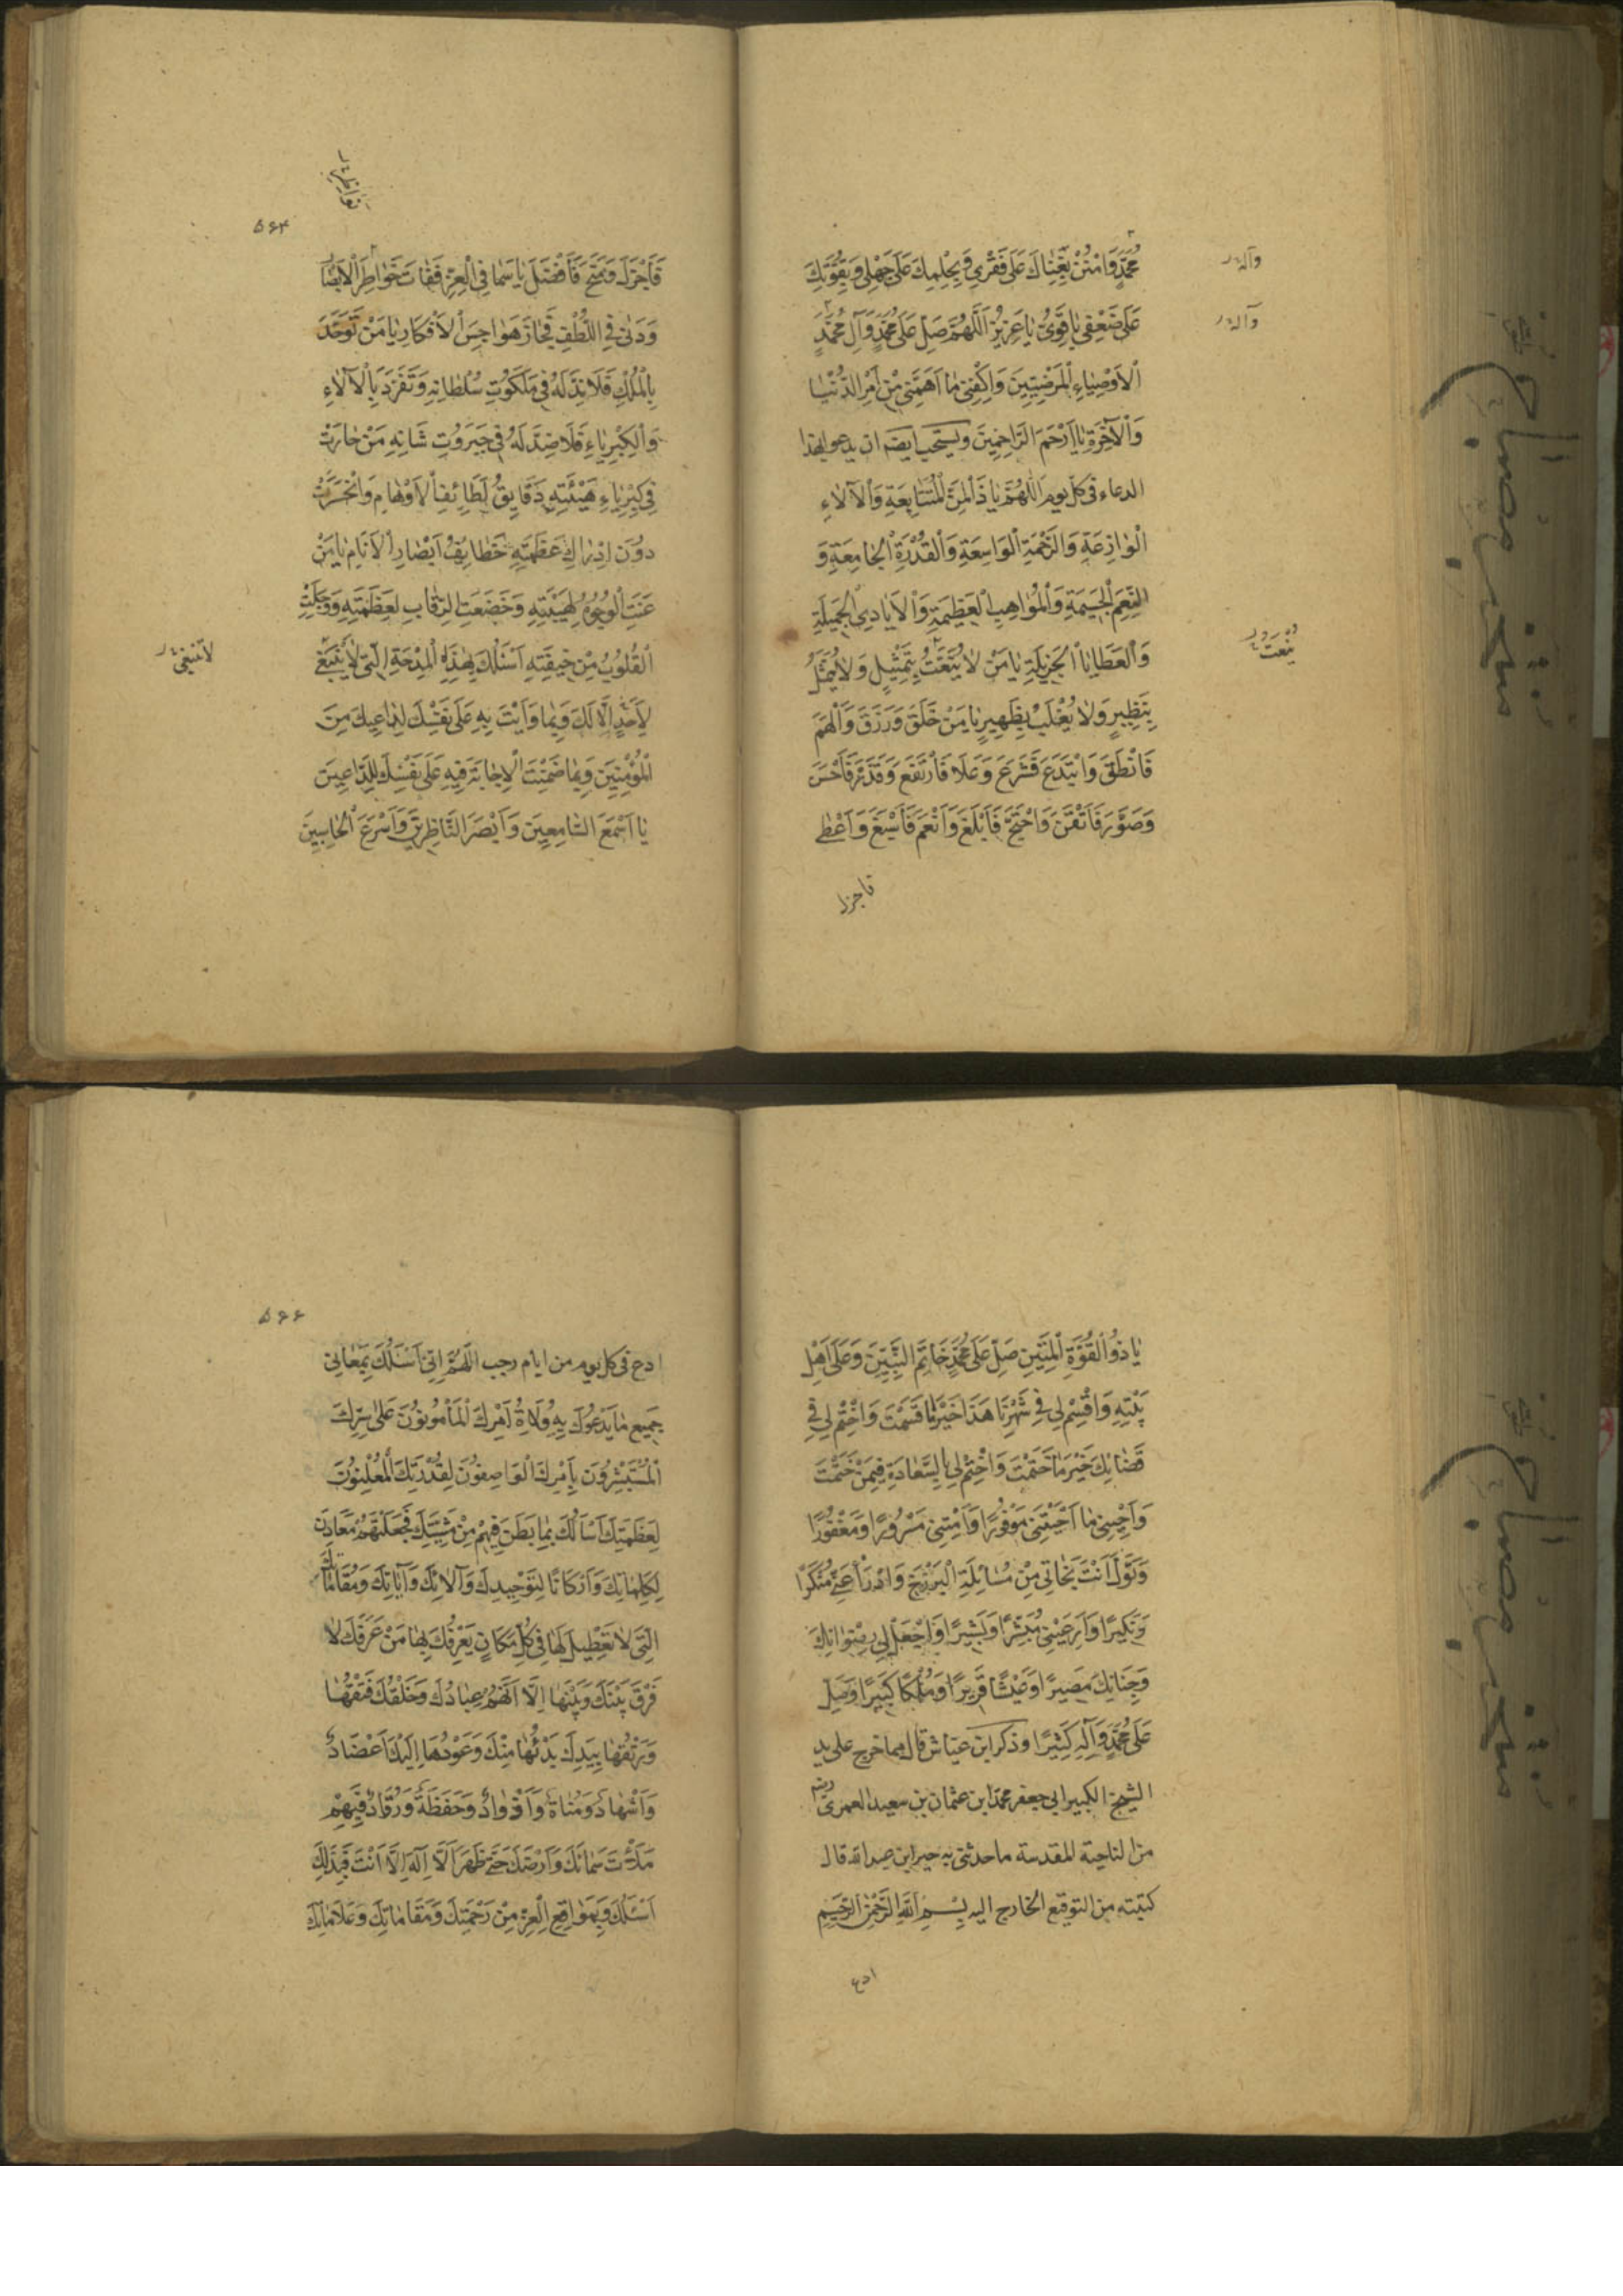 مُحَمَّدٍ وَامْنُنْ بِغِنَاكَ عَلَى فَقْرِي وَبِحِلْمِكَ عَلَى جَهْلِي وَبِقُوَّتِكَ
وآله
عَلَى ضَعْفِي يَا قَوِيُّ يَا عَزِيزُ اَللَّهُمَّ صَلِّ عَلَى مُحَمَّدٍ وَآلِ مُحَمَّدٍ
وآله
اَلْاَوْصِيَاءِ الْمَرْضِيِّينَ وَاكْفِنِي مَا اَهَمَّنِي مِنْ اَمْرِ الدُّنْيَا
وَالْآخِرَةِ يَا اَرْحَمَ الرَّاحِمِينَ ويستحب ايضا ان يدعو بهذا
الدعاء فى كل يوم اَللَّهُمَّ يَا ذَا الْمِنَنِ الْمُتَتَابِعَةِ وَالْآلَاءِ
الْوَازِعَةِ وَالرَّحْمَةِ الْوَاسِعَةِ وَالْقُدْرَةِ الْجَامِعَةِ وَ
النِّعَمِ الْجَسِيمَةِ وَالْمَوَاهِبِ الْعَظِيمَةِ وَالْاَيَادِي الْجَمِيلَةِ
وَالْعَطَايَا الْجَزِيلَةِ يَا مَنْ لَا يُنْعَتُ بِتَمْثِيلٍ وَلَا يُمَثَّلُ
يُنْعَتُ
بِنَظِيرٍ وَلَا يُغْلَبُ بِظَهِيرٍ يَا مَنْ خَلَقَ وَرَزَقَ وَاَلْهَمَ
فَاَنْطَقَ وَابْتَدَعَ فَشَرَعَ وَعَلَا فَارْتَفَعَ وَقَدَّرَ فَاَحْسَنَ
وَصَوَّرَ فَاَتْقَنَ وَاحْتَجَّ فَاَبْلَغَ وَاَنْعَمَ فَاَسْبَغَ وَاَعْطَى
فاجزل
۵۶۴
فَاَجْزَلَ وَمَنَحَ فَاَفْضَلَ يَا مَنْ سَمَا فِي الْعِزِّ فَفَاتَ خَوَاطِرَ الْاَبْصَارِ
وَدَنَى فِي اللُّطْفِ فَجَازَ هَوَاجِسَ الْاَفْكَارِ يَا مَنْ تَوَحَّدَ
بِالْمُلْكِ فَلَا نِدَّ لَهُ فِي مَلَكُوتِ سُلْطَانِهِ وَتَفَرَّدَ بِالْآلَاءِ
وَالْكِبْرِيَاءِ فَلَا ضِدَّ لَهُ فِي جَبَرُوتِ شَانِهِ مَنْ حَارَتْ
فِي كِبْرِيَاءِ هَيْبَتِهِ دَقَايِقُ لَطَائِفِ الْاَوْهَامِ وَانْحَسَرَتْ
دُونَ اِدْرَاكِ عَظَمَتِهِ خَطَايِفُ اَبْصَارِ الْاَنَامِ يَا مَنْ
عَنَتِ الْوُجُوهُ لِهَيْبَتِهِ وَخَضَعَتِ الرِّقَابُ لِعَظَمَتِهِ وَوَجِلَتِ
الْقُلُوبُ مِنْ خِيفَتِهِ اَسْئَلُكَ بِهَذِهِ الْمِدْحَةِ الَّتِي لَا يَنْبَغِي
لاتنبغى
لِاَحَدٍ اِلَّا لَكَ وَبِمَا وَاَيْتَ بِهِ عَلَى نَفْسِكَ لِدَاعِيكَ مِنَ
الْمُؤْمِنِينَ وَبِمَا ضَمِنْتَ الْاِجَابَةَ فِيهِ عَلَى نَفْسِكَ لِلدَّاعِينَ
يَا اَسْمَعَ السَّامِعِينَ وَاَبْصَرَ النَّاظِرِينَ وَاَسْرَعَ الْحَاسِبِينَ
يَا ذُو الْقُوَّةِ الْمَتِينِ صَلِّ عَلَى مُحَمَّدٍ خَاتَمِ النَّبِيِّينَ وَعَلَى اَهْلِ
بَيْتِهِ وَاقْسِمْ لِي فِي شَهْرِنَا هَذَا خَيْرَ مَا قَسَمْتَ وَاخْتِمْ لِي فِي
قَضَائِكَ خَيْرَ مَا خَتَمْتَ وَاخْتِمْ لِي بِالسَّعَادَةِ فِيمَنْ خَتَمْتَ
وَاَحْيِنِي مَا اَحْيَيْتَنِي مَوْفُورًا وَاَمِتْنِي مَسْرُورًا وَمَغْفُورًا
وَتَوَلَّ اَنْتَ نَجَاتِي مِنْ مُسَائِلَةِ الْبَرْزَخِ وَادْرَأْ عَنِّي مُنْكَرًا
وَنَكِيرًا وَاَرِ عَيْنِي مُبَشِّرًا وَبَشِيرًا وَاجْعَلْ لِي رِضْوَانِكَ
وَجِنَانِكَ مَصِيرًا وَعَيْشًا قَرِيرًا وَمُلْكًا كَبِيرًا وَصَلِّ
عَلَى مُحَمَّدٍ وَآلِهِ كَثِيرًا وذكر ابن عياش قال مما خرج على يد
الشيخ الكبير ابى جعفر محمد ابن عثمان بن سعيد العمرى رضه
من الناحية المقدسة ما حدثنى به خير ابن عبد الله قال
كتبته من التوقيع الخارج اليه بِسْمِ اللَّهِ الرَّحْمٰنِ الرَّحِيمِ
ادع
۵۶۶
ادع فى كل يوم من ايام رجب اَللَّهُمَّ اِنِّي اَسْئَلُكَ بِمَعَانِي
جَمِيعِ مَا يَدْعُوكَ بِهِ وُلَاةُ اَمْرِكَ الْمَأْمُونُونَ عَلَى سِرِّكَ
الْمُسْتَبْشِرُونَ بِاَمْرِكَ الْوَاصِفُونَ لِقُدْرَتِكَ الْمُعْلِنُونَ
لِعَظَمَتِكَ اَسْاَلُكَ بِمَا بَطَنَ فِيهِمْ مِنْ مَشِيَّتِكَ فَجَعَلْتَهُمْ مَعَادِنَ
لِكَلِمَاتِكَ وَاَرْكَانًا لِتَوْحِيدِكَ وَآلَائِكَ وَآيَاتِكَ وَمَقَامَاتِكَ
الَّتِي لَا تَعْطِيلَ لَهَا فِي كُلِّ مَكَانٍ يَعْرِفُكَ بِهَا مَنْ عَرَفَكَ لَا
فَرْقَ بَيْنَكَ وَبَيْنَهَا اِلَّا اَنَّهُمْ عِبَادُكَ وَخَلْقُكَ فَتْقُهَا
وَرَتْقُهَا بِيَدِكَ بَدْئُهَا مِنْكَ وَعَوْدُهَا اِلَيْكَ اَعْضَادٌ
وَاَشْهَادٌ وَمُنَاةٌ وَاَذْوَادٌ وَحَفَظَةٌ وَرُوَّادٌ فَبِهِمْ
مَلَأْتَ سَمَائَكَ وَاَرْضَكَ حَتَّى ظَهَرَ اَلَّا اِلَهَ اِلَّا اَنْتَ فَبِذَلِكَ
اَسْئَلُكَ وَبِمَوَاقِعِ الْعِزِّ مِنْ رَحْمَتِكَ وَمَقَامَاتِكَ وَعَلَامَاتِكَ